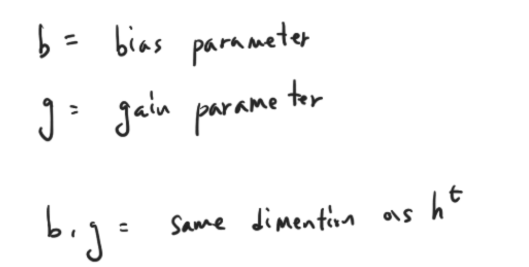 b = bias parameter
g = gain parameter
b, g = same dimention as h^t